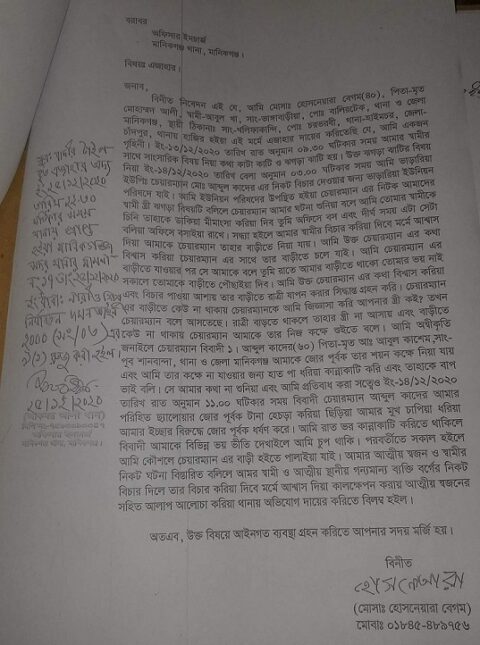 বরাবর
অফিসার ইনচার্জ
মানিকগঞ্জ থানা, মানিকগঞ্জ।
বিষয়ঃ এজাহার।
জনাব,
বিনীত নিবেদন এই যে, আমি মোসাঃ হোসনেয়ারা বেগম(৪০), পিতা-মৃত
মোহাম্মদ আলী, স্বামী-আবুল খা, সাং-ভাঙ্গাবাড়ীয়া, পোঃ বালিয়টেক, থানা ও জেলা
মানিকগঞ্জ, স্থায়ী ঠিকানাঃ সাং-খলিফাকান্দি, পোঃ চরভরবী, থানা-হাইমচর, জেলা-
চাঁদপুর, থানায় হাজির হইয়া এই মর্মে এজাহার দায়ের করিতেছি যে, আমি একজন
গৃহিনী। ইং-১৩/১২/২০২০ তারিখ রাত অনুমান ০৯.৩০ ঘটিকার সময় আমার স্বামীর
সাথে সাংসারিক বিষয় নিয়া কথা কাটা কাটি ও ঝগড়া ঝাটি হয়। উক্ত ঝগড়া ঝাটির বিষয়
নিয়া ইং-১৪/১২/২০২০ তারিখ বেলা অনুমান ০৩.০০ ঘটিকার সময় আমি ভাড়ারিয়া
ইউপিঃ চেয়ারম্যান মোঃ আব্দুল কাদের এর নিকট বিচার দেওয়ার জন্য ভাড়ারিয়া ইউনিয়ন
পরিষদে যাই। আমি ইউনিয়ন পরিষদের উপস্থিত হইয়া চেয়ারম্যান এর নিকট আমাদের
স্বামী স্ত্রী ঝগড়া বিষয়টি বলিলে চেয়ারম্যান আমার ঘটনা শুনিয়া বলে আমি তোমার স্বামীকে
চিনি তাহাকে ডাকিয়া মীমাংসা করিয়া দিব তুমি অফিসে বস এবং দীর্ঘ সময় এটা সেটা
বলিয়া অফিসে বসাইয়া রাখে। সন্ধ্যা হইলে আমার স্বামীর বিচার করিয়া দিবে মর্মে আশ্বাস
দিয়া আমাকে চেয়ারম্যান তাহার বাড়ীতে নিয়া যায়। আমি উক্ত চেয়ারম্যান এর কথা
বিশ্বাস করিয়া চেয়ারম্যান এর সাথে তার বাড়ীতে চলে যাই। আমি চেয়ারম্যান এর
বাড়ীতে যাওয়ার পর সে আমাকে বলে তুমি রাতে আমার বাড়ীতে থাকো তোমার ভয় নাই
সকালে তোমাকে বাড়ীতে পৌছাইয়া দিব। আমি উক্ত চেয়ারম্যান এর কথা বিশ্বাস করিয়া
এবং বিচার পাওয়া আশায় তার বাড়ীতে রাত্রী যাপন করার সিদ্ধান্ত গ্রহন করি। চেয়ারম্যান
এর বাড়ীতে কেউ না থাকায় চেয়ারম্যানকে আমি জিজ্ঞাসা করি আপনার স্ত্রী কই? তখন
চেয়ারম্যান বলে আসতেছে। রাত্রী বাড়তে থাকলে তাহার স্ত্রী না আসায় এবং বাড়ীতে
কেউ না থাকায় চেয়ারম্যান আমাকে তার নিজ কক্ষে শুইতে বলে। আমি অস্বীকৃতি
জনাইলে চেয়ারম্যান বিবাদী ১। আব্দুল কাদের(৬০) পিতা-মৃত আঃ আবুল কাশেম,সাং-
পূব শানবান্দা, থানা ও জেলা মানিকগঞ্জ আমাকে জোর পূর্বক তার শয়ন কক্ষে নিয়া যায়
এবং আমি তার কক্ষে না যাওয়ার জন্য হাত পা ধরিয়া কান্নাকাটি করি এবং তাহাকে বাপ
ভাই বলি। সে আমার কথা না শুনিয়া এবং আমি প্রতিবাধ করা সত্ত্বেও ইং-১৪/১২/২০২০
তারিখ রাত অনুমান ১১.০০ ঘটিকার সময় বিবাদী চেয়ারম্যান আব্দুল কাদের আমার
পরিহিত ছ্যালোয়ার জোর পূর্বক টানা হেচড়া করিয়া ছিড়িয়া আমার মুখ চাপিয়া ধরিয়া
আমার ইচ্ছার বিরুদ্ধে জোর পূর্বক ধর্ষন করে। আমি রাত ভর কান্নাকাটি করিতে থাকিলে
বিবাদী আমাকে বিভিন্ন ভয় ভীতি দেখাইলে আমি চুপ থাকি। পরবর্তীতে সকাল হইলে
আমি কৌশলে চেয়ারম্যান এর বাড়ী হইতে পালাইয়া যাই। আমার আত্মীয় স্বজন ও স্বামীর
নিকট ঘটনা বিস্তারিত বলিলে আমর স্বামী ও আত্মীয় স্থানীয় গন্যমান্য ব্যক্তি বর্গের নিকট
বিচার দিলে তার বিচার করিয়া দিবে মর্মে আশ্বাস দিয়া কালক্ষেপন করায় আত্মীয় স্বজনের
সহিত আলাপ আলোচা করিয়া থানায় অভিযোগ দায়ের করিতে বিলম্ব হইল।
অতএব, উক্ত বিষয়ে আইনগত ব্যবস্থা গ্রহন করিতে আপনার সদয় মর্জি হয়।
বিনীত
হোসনেআরা
(মোসাঃ হোসনেয়ারা বেগম)
মোবাঃ ০১৮৪৫-৪৮৯৭৫৬
২০০০ (সং/০৩) এর
৯(১) রুজু করা হইল।
২৫/১২/২০২০